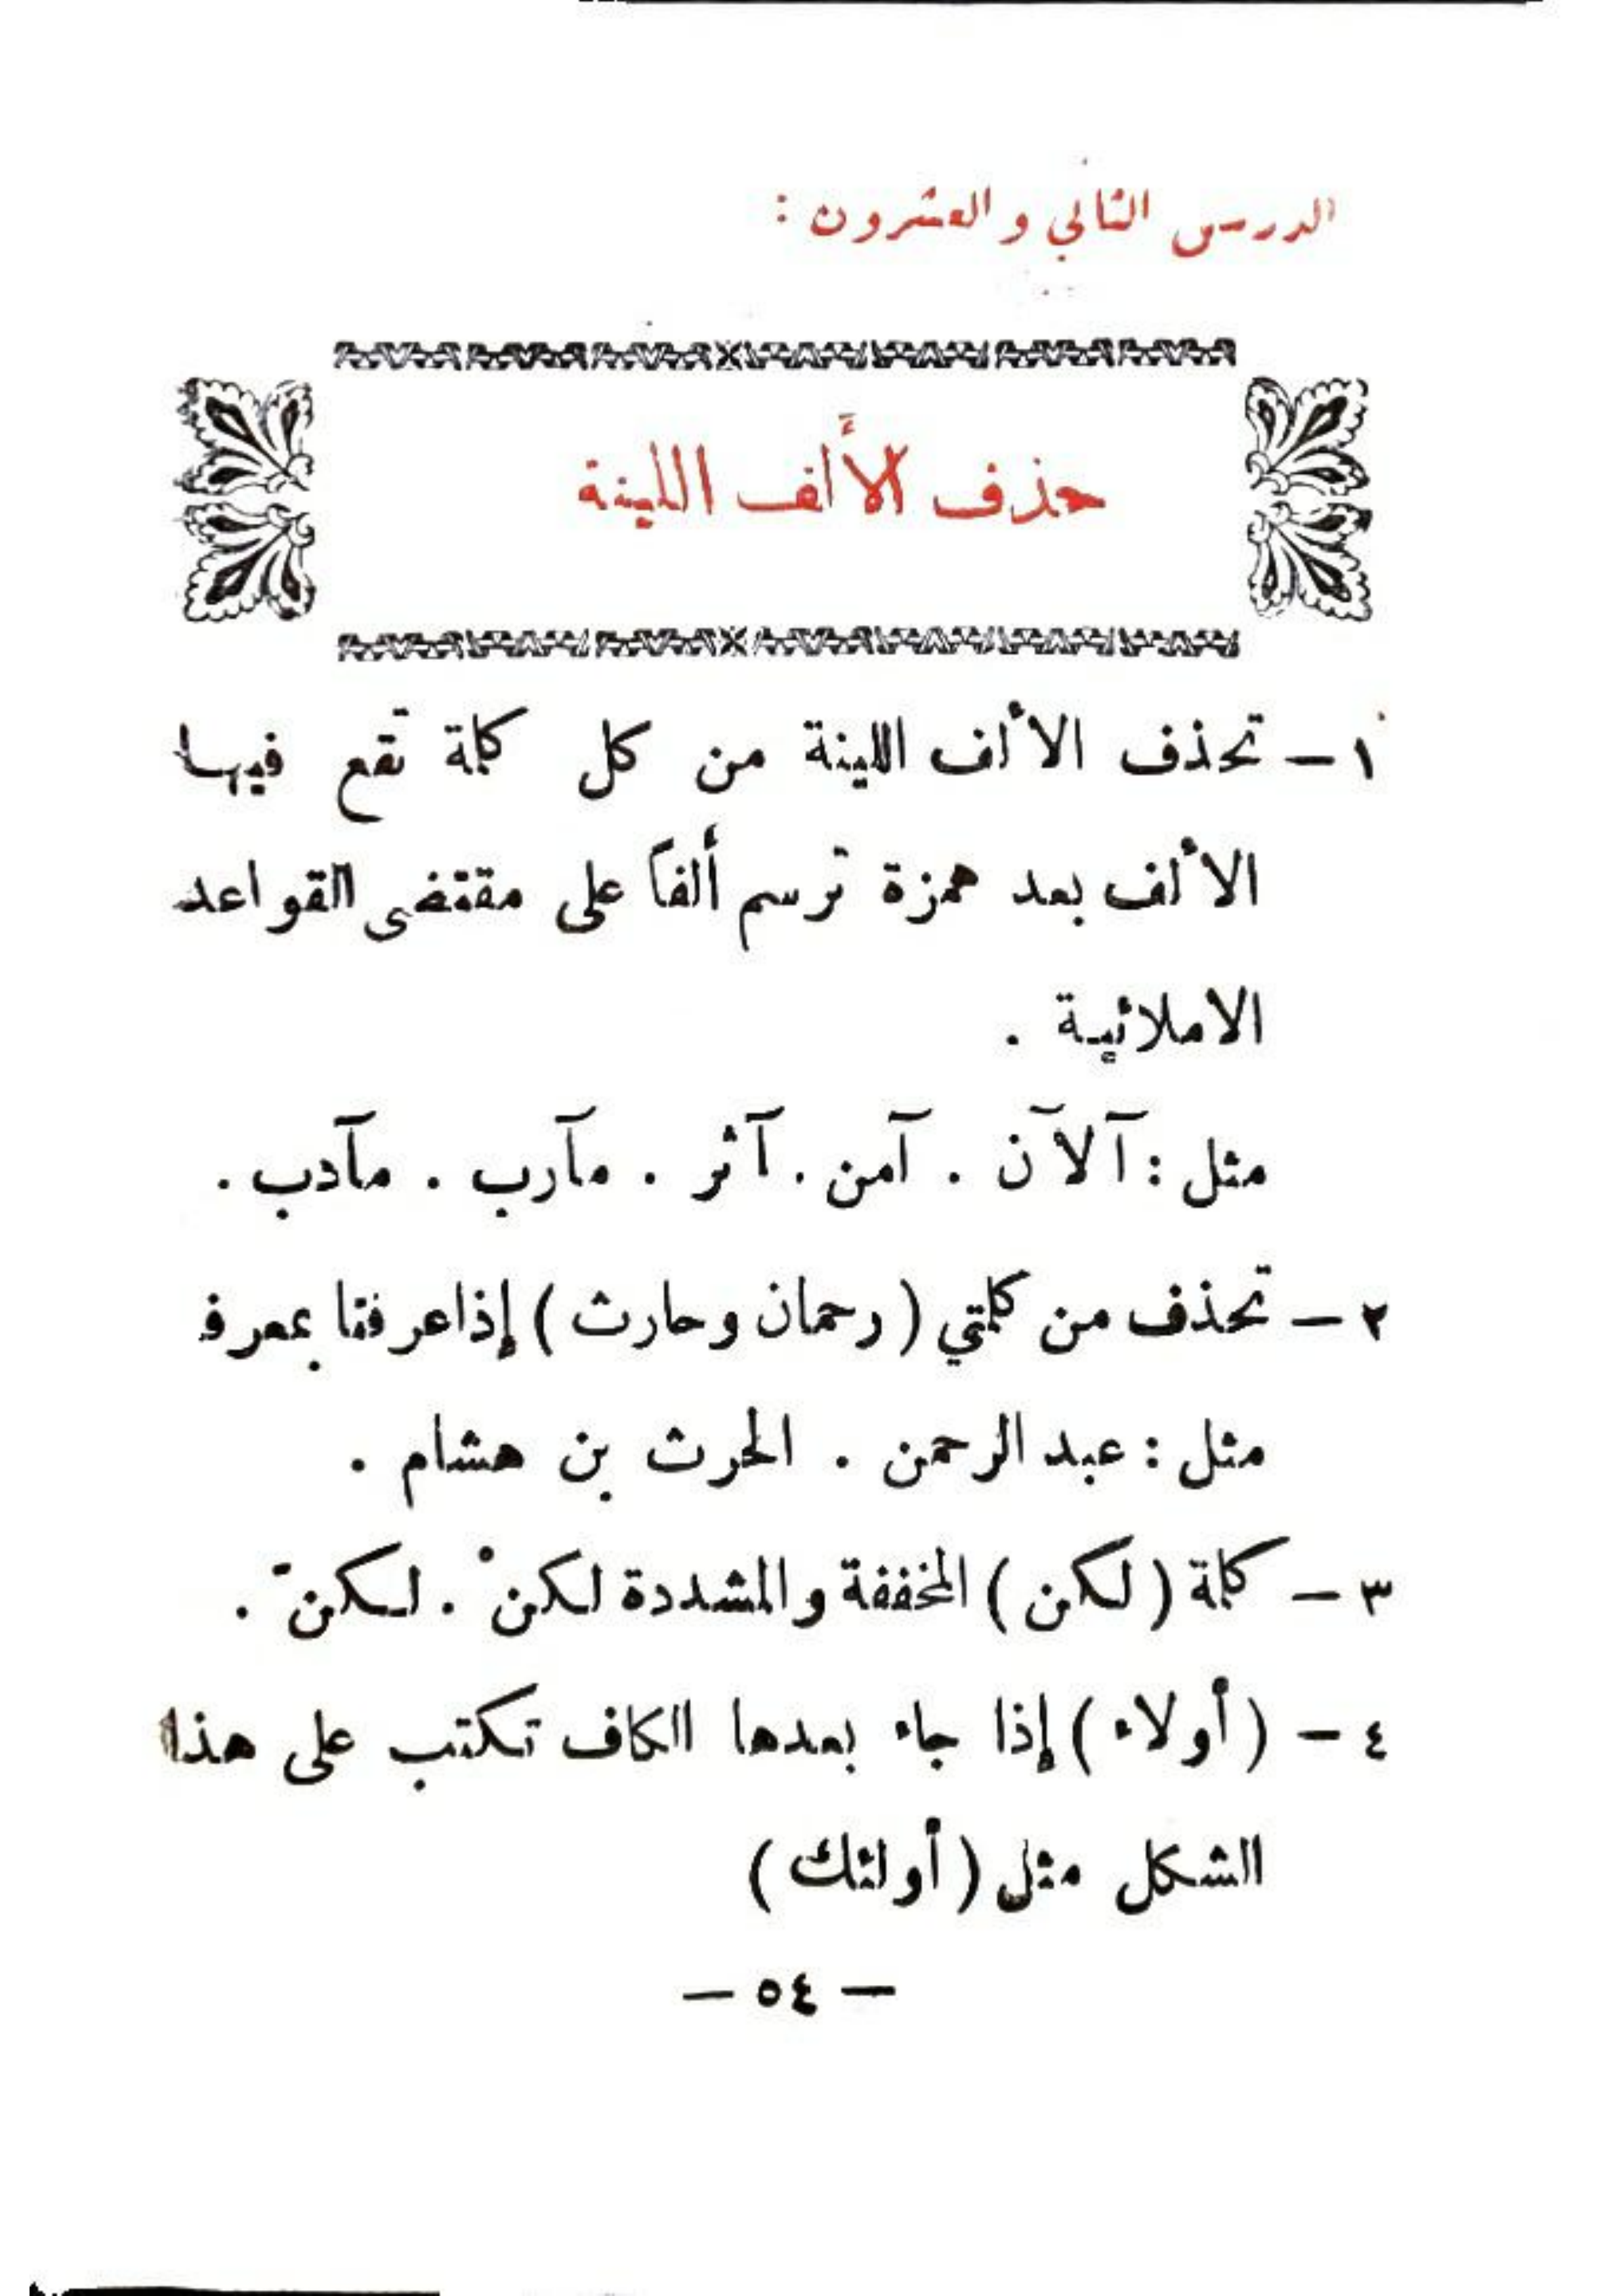 الدرس الثاني والعشرون :
حذف الأَلف اللينة
١ – تحذف الألف اللينة من كل كلمة تقع فيها
الألف بعد همزة ترسم ألفاً على مقتضى القواعد
الاملائية .
مثل : آلآن . آمن . آثر . مآرب . مآدب .
٢ – تحذف من كلمتي ( رحمان وحارث ) إذا عرفتا بمعرف
مثل : عبد الرحمن . الحرث بن هشام .
٣ – كلمة ( لكن ) المخففة والمشددة لكنْ . لكنّ .
٤ – ( أولاء ) إذا جاء بعدها الكاف تكتب على هذا
الشكل مثل ( أولئك )
– ٥٤ –